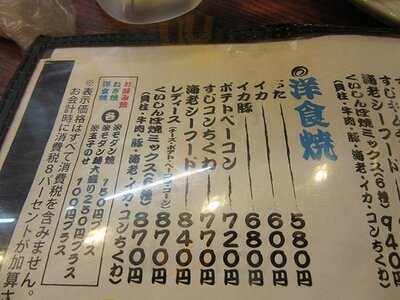 すじコンキム
海老シーフード
くいしんぼ焼ミックス(6きり) 940円
(貝柱・牛肉・豚・海老・イカ・コンちくわ)
洋食焼
ぶた 580円
イカ 680円
イカ豚 600円
ポテトベーコン 720円
すじコンちくわ 770円
海老シーフード 840円
レディース(チーズ・ポテト・ベーコン・コーン) 870円
くいしんぼ焼ミックス(6きり) 870円
(貝柱・牛肉・豚・海老・イカ・コンちくわ)
お好み焼
ねぎ焼
洋食焼
各
※モダン焼 150円プラス
※モダン焼大盛り 250円プラス
※玉子のせ 100円プラス
※表示価格はすべて消費税を含みません。
お会計時に消費税8パーセントが加算